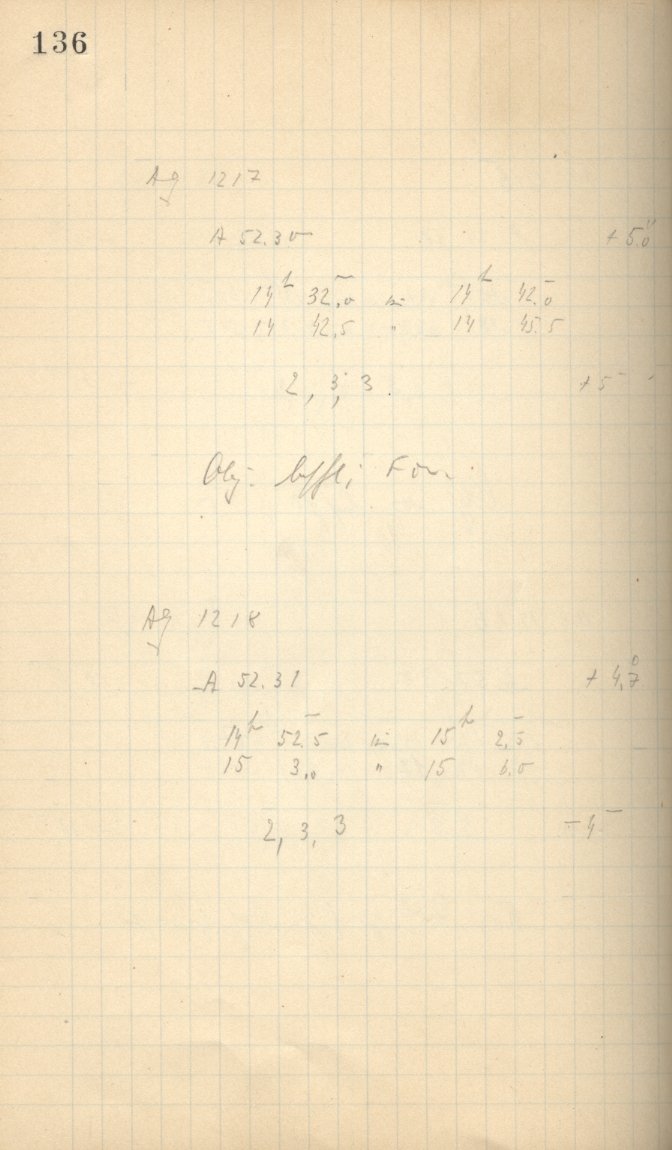 136
Ag 1217
A 52.30 + 5.0
14h 32.0 bis 14h 42.0
14 42.5 " 14 45.5
2, 3, 3 + 5
Obj.
Ag 1218
A 52.31 + 4.7
14h 52.5 bis 15h 2.5
15 3.0 " 15 6.0
2, 3, 3 - 4